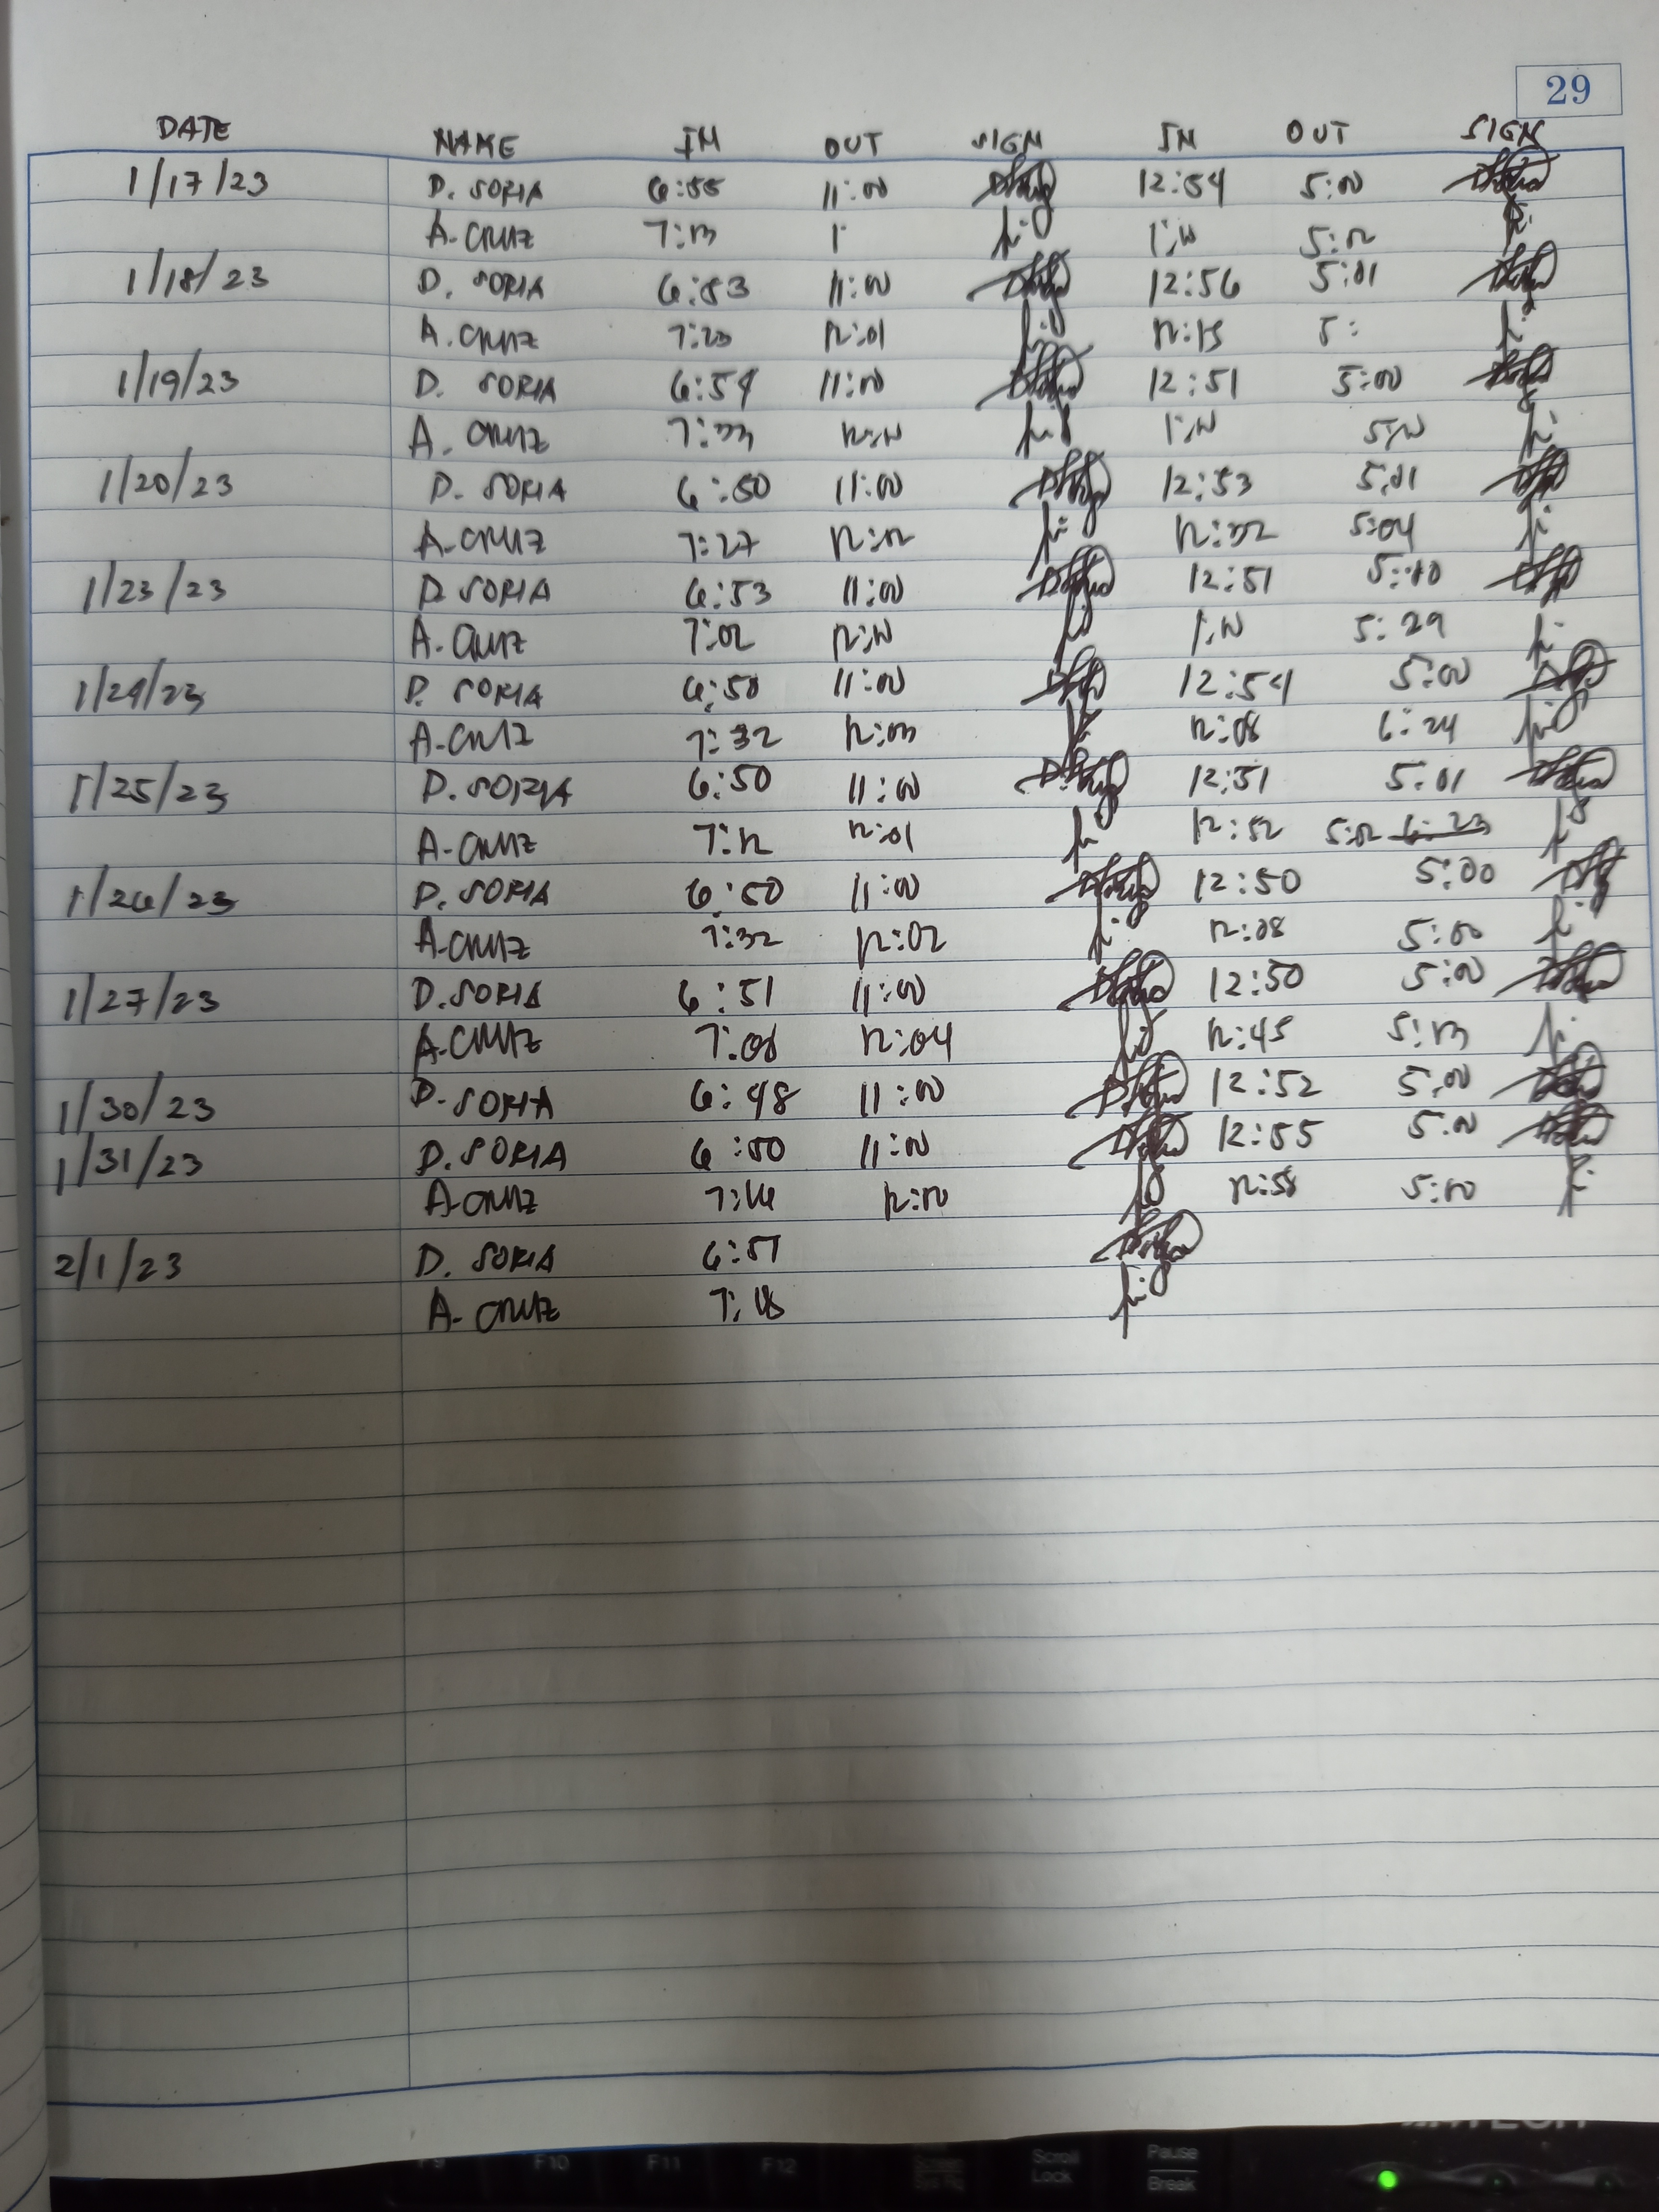 29
DATE NAME IN OUT SIGN IN OUT SIGN
1/17/23 D. SORIA 6:55 11:00 12:54 5:00
A. CRUZ 7:13 1 5:12
1/18/23 D. SORIA 6:53 11:00 12:56 5:01
A. CRUZ 7:23 12:01 12:15 5:
1/19/23 D. SORIA 6:54 11:00 12:51 5:00
A. CRUZ 7:33
1/20/23 D. SORIA 6:50 11:00 12:53 5:01
A. CRUZ 7:27 12:12 12:32 5:04
1/23/23 D. SORIA 6:53 11:00 12:51 5:00
A. CRUZ 7:02 5:29
1/24/23 D. SORIA 6:50 11:00 12:54 5:00
A. CRUZ 7:32 12:03 12:08 6:24
1/25/23 D. SORIA 6:50 11:00 12:51 5:01
A. CRUZ 7:12 12:01 12:52 5:02 6:23
1/26/23 D. SORIA 6:50 11:00 12:50 5:00
A. CRUZ 7:32 12:02 12:08 5:00
1/27/23 D. SORIA 6:51 11:00 12:50 5:00
A. CRUZ 12:04 12:45 5:13
1/30/23 D. SORIA 6:48 11:00 12:52 5:00
1/31/23 D. SORIA 6:50 11:00 12:55 5:00
A. CRUZ 7:16 12:58 5:00
2/1/23 D. SORIA 6:51
A. CRUZ 7:18
F9 F10 F11 F12 Scroll Lock Pause Break